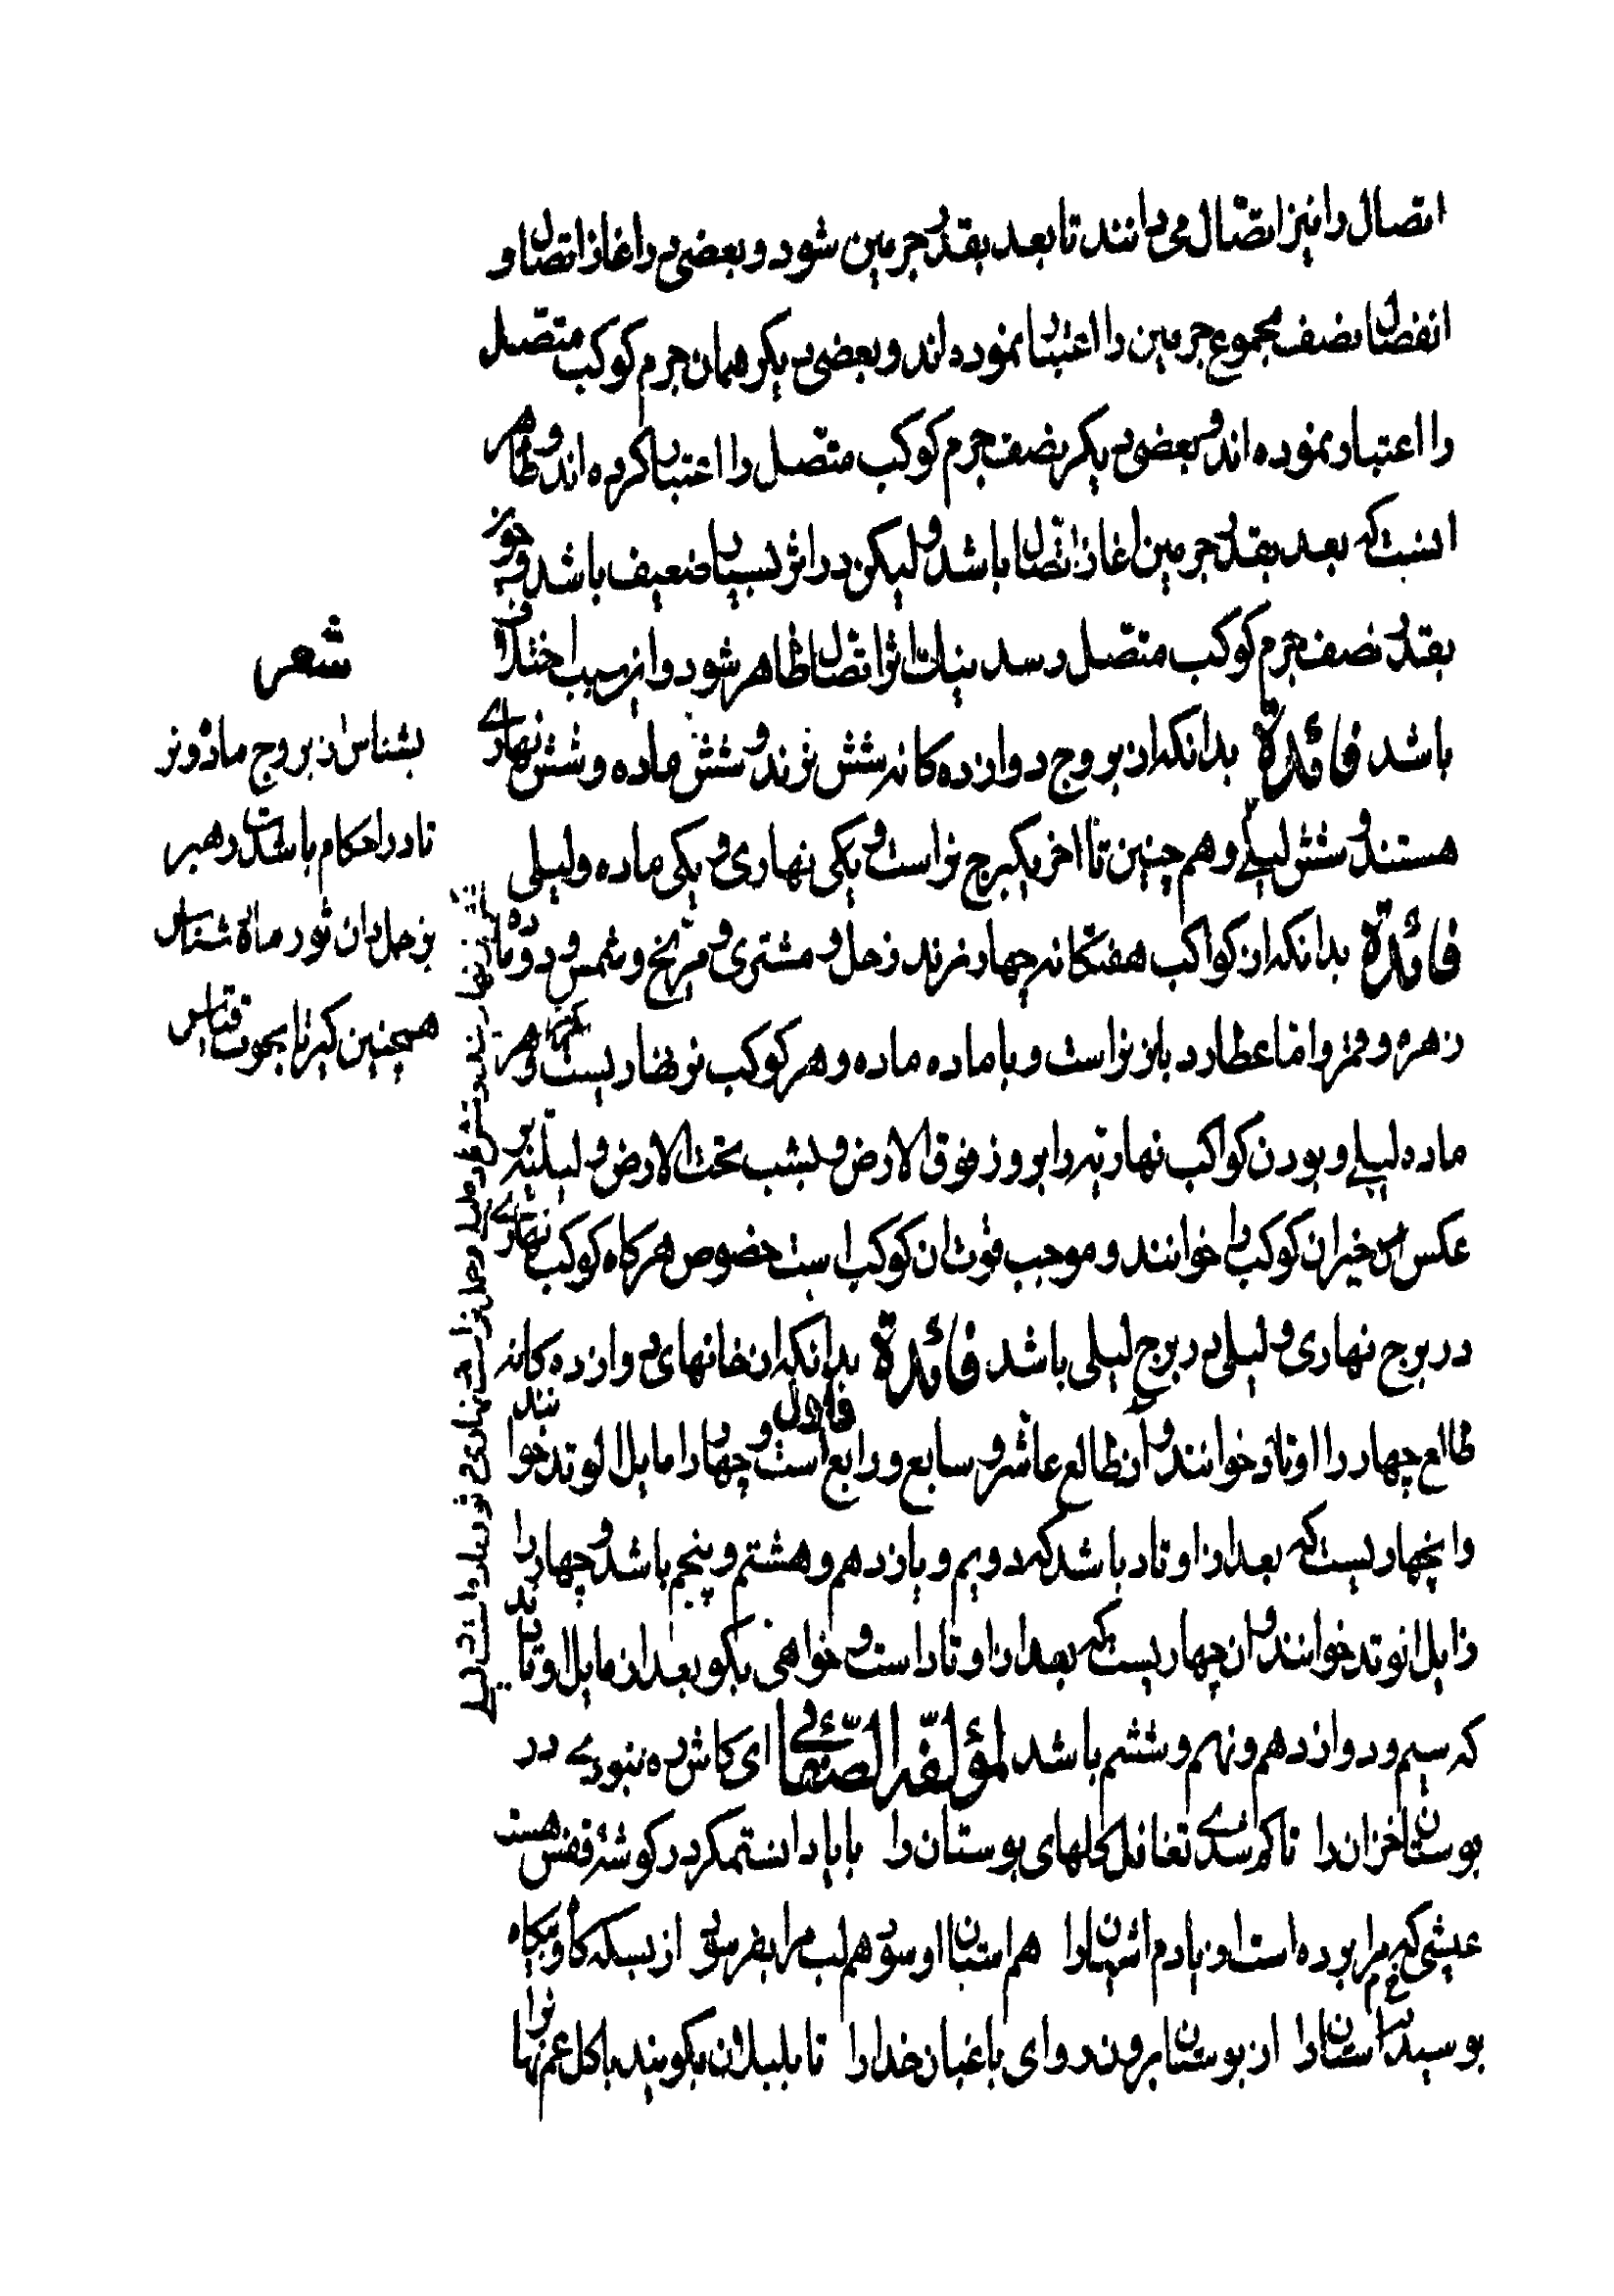 اتصال را نیز اتصال می دانند تا بعد بقدر جرمین شود و بعضی در اغاز اتصال و
انفصال نصف مجموع جرمین را اعتبار نموده اند و بعضی دیگر همان جرم کوکب متصل
را اعتبار نموده اند و بعضی دیگر نصف جرم کوکب متصل را اعتبار کرده اند و ظاهر
انست که بعد بقدر جرمین اغاز اتصال باشد و لیکن در اثر بسیار ضعیف باشد و چون
بقدر نصف جرم کوکب متصل رسد اثر اتصال ظاهر شود و سبب اختلاف
باشد فائدة بدانکه از بروج دوازده کانه شش نرند و شش ماده و شش نهاری
هستند و شش لیلی و هم چنین تا اخر یکبرج نر است و یکی نهاری و یکی ماده و لیلی
فائدة بدانکه از کواکب هفتکانه چهار نرند زحل و مشتری و مریخ و شمس و دو ماده
زهره و قمر و اما عطارد با نر نر است و با ماده ماده و هر کوکب نر نهاریست و هر
ماده لیلی و بودن کواکب نهاریه را بروز فوق الارض و بشب تحت الارض و لیلیه بر
عکس این خیر ان کوکب را خوانند و موجب قوت ان کوکب است خصوص هرکاه کوکب نهاری
در برج نهاری و لیلی در برج لیلی باشد فائدة بدانکه از خانهای دوازده کانه
طالع چهار را اوتاد خوانند و ان طالع و عاشر و سابع و رابع است و چهار را مایل الوتد خوانند
و انچهاریست که بعد از اوتاد باشد که دویم و یازدهم و هشتم و پنجم باشد و چهار را
زایل الوتد خوانند و ان چهاریست که بعد از اوتاد است و خواهی بکو بعد از مایل اوتاد
که سیم و دوازدهم و نهم و ششم باشد لمؤلفه الصهبائی ای کاش ره نبودے در
بوستان خزان را تا کم رسدے تغافل کلهای بوستان را با یاد ان ستمکر در کوشه قفس هست
عیشی که برده است از یادم اشیان را هم استان او سود هم لب مرا بفرسود از بسکه کاه و بیکاه
بوسیدم استان را از بوستان برون رو ای باغبان خدا را تا بلبلان بکویند با کل غم نهان را
شعر
بشناس ز بروج ماده و نر
تا در احکام باشدت رهبر
نر حمل دان ثور ماده شناس
همچنین کیر تا بحوت قیاس